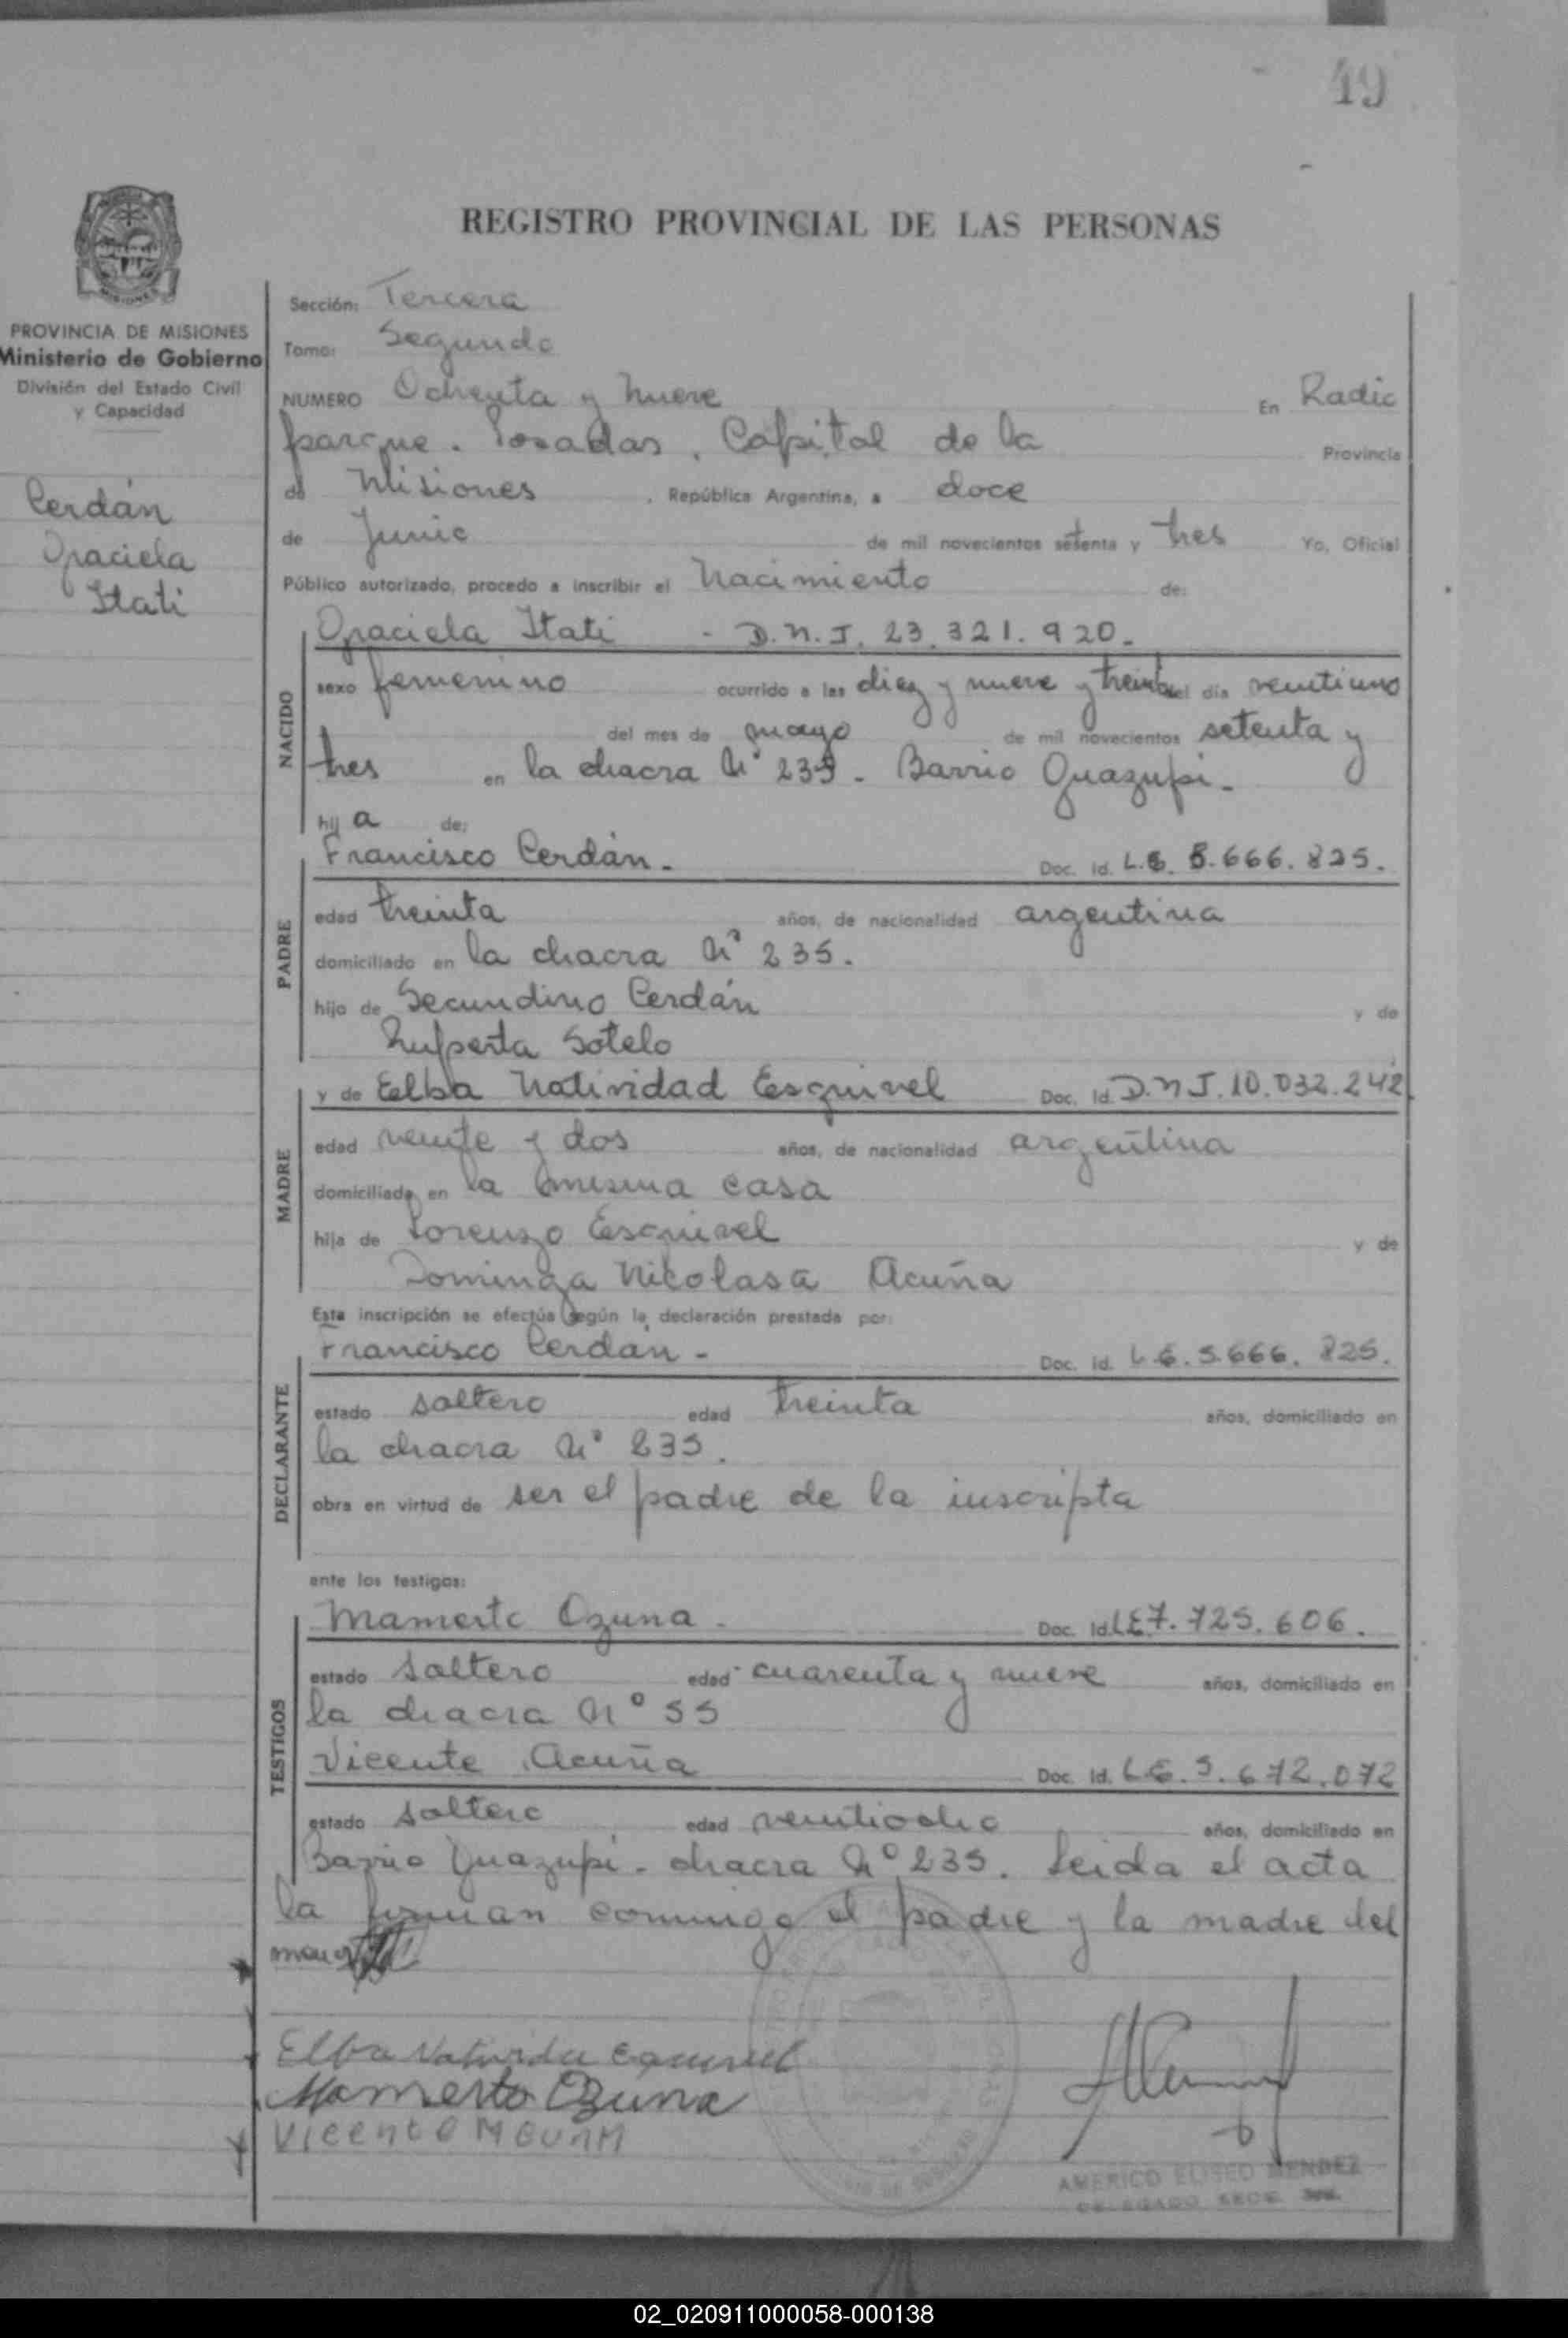 49
REGISTRO PROVINCIAL DE LAS PERSONAS
MISIONES
PROVINCIA DE MISIONES
Ministerio de Gobierno
División del Estado Civil
y Capacidad
Cerdán
Graciela
Itati
Sección: Tercera
Tomo: Segundo
NUMERO Ochenta y nueve En Radio
parque. Posadas. Capital de la Provincia
de Misiones, República Argentina, a doce
de Junio de mil novecientos setenta y tres Yo, Oficial
Público autorizado, procedo a inscribir el nacimiento de:
Graciela Itati - D.N.I. 23.321.920.
NACIDO
sexo femenino ocurrido a las diez y nueve y treinta del día veintiuno
del mes de mayo de mil novecientos setenta y
tres en la chacra Nº 235 - Barrio Guazupi-
hij a de:
Francisco Cerdán. Doc. Id. L.E. 5.666.825.
PADRE
edad treinta años, de nacionalidad argentina
domiciliado en la chacra Nº 235.
hijo de Secundino Cerdán y de
Ruperta Sotelo
y de Elba Natividad Esquivel Doc. Id. D.N.I. 10.032.242
MADRE
edad veinte y dos años, de nacionalidad argentina
domiciliada en la misma casa
hija de Lorenzo Esquivel y de
Dominga Nicolasa Acuña
Esta inscripción se efectúa según la declaración prestada por:
Francisco Cerdán - Doc. Id. L.E. 5.666.825.
DECLARANTE
estado soltero edad treinta años, domiciliado en
la chacra Nº 235.
obra en virtud de ser el padre de la inscripta
ante los testigos:
Mamerto Ozuna. Doc. Id. L.E 7.725.606.
TESTIGOS
estado soltero edad cuarenta y nueve años, domiciliado en
la chacra Nº 55
Vicente Acuña Doc. Id. L.E. 5.672.072
estado soltero edad veintiocho años, domiciliado en
Barrio Guazupi - chacra Nº 235. Leida el acta
la firman conmigo el padre y la madre del
Elba Natividad Esquivel
Mamerto Ozuna
Vicente Acuña
AMERICO ELISEO MENDEZ
DELEGADO SECC.
02_020911000058-000138